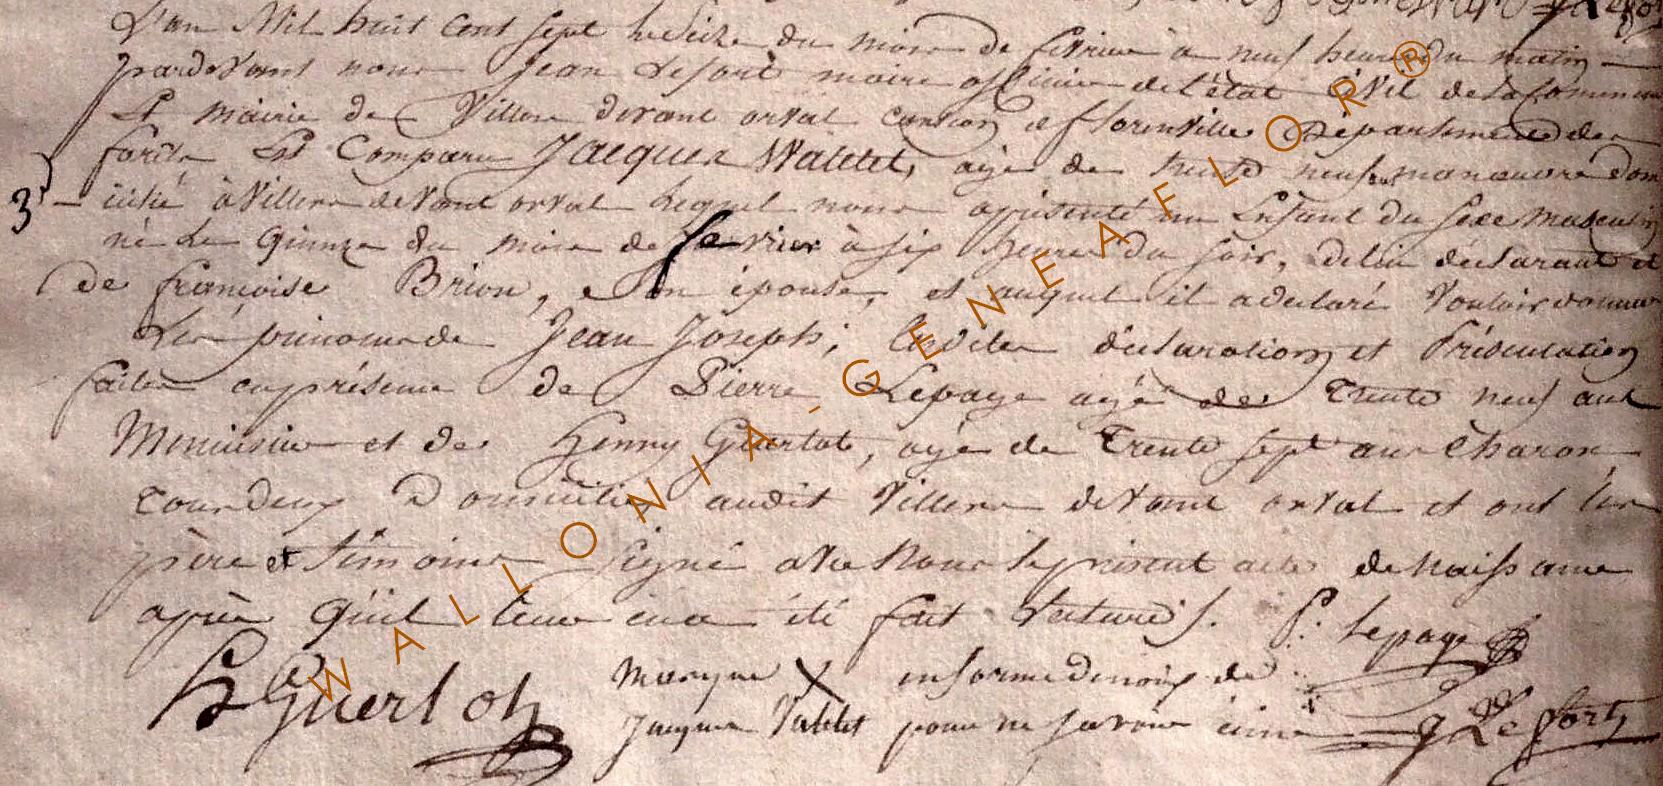 L'an Mil huit cent sept le seize du mois de fevrier a neuf heure du matin
pardevant nous Jean Lefort maire officier de l'état civil de la Commune
et mairie de Villers devant orval canton de florenville Departement des
forêts Est Comparu Jacques Watelet, agé de trente neuf ans manoeuvre dom
3
icilié à Villers devant orval lequel nous a présenté un Enfant du Sexe masculin
né le Quinze du mois de fevrier à six heures du soir, de lui déclarant et
de françoise Brion, son épouse, et auquel il a declaré vouloir donner
les prénoms de Jean Joseph; lesdites déclaration et Présentation
faites en présence de Pierre Lepage agé de Trente neuf ans
Menuisier et de Henry Guerlot, agé de Trente sept ans Charon
Tous deux Domiciliés audit Villers devant orval et ont les
père et témoins signé avec nous le présent acte de naissance
après qu'il leur en a été fait lecture. P. Lepage
H Guerlot
marque X en forme de croix de
Jacques Watlet pour ne savoir écrire J Lefort
WALLONIA-GENEAFLOR®